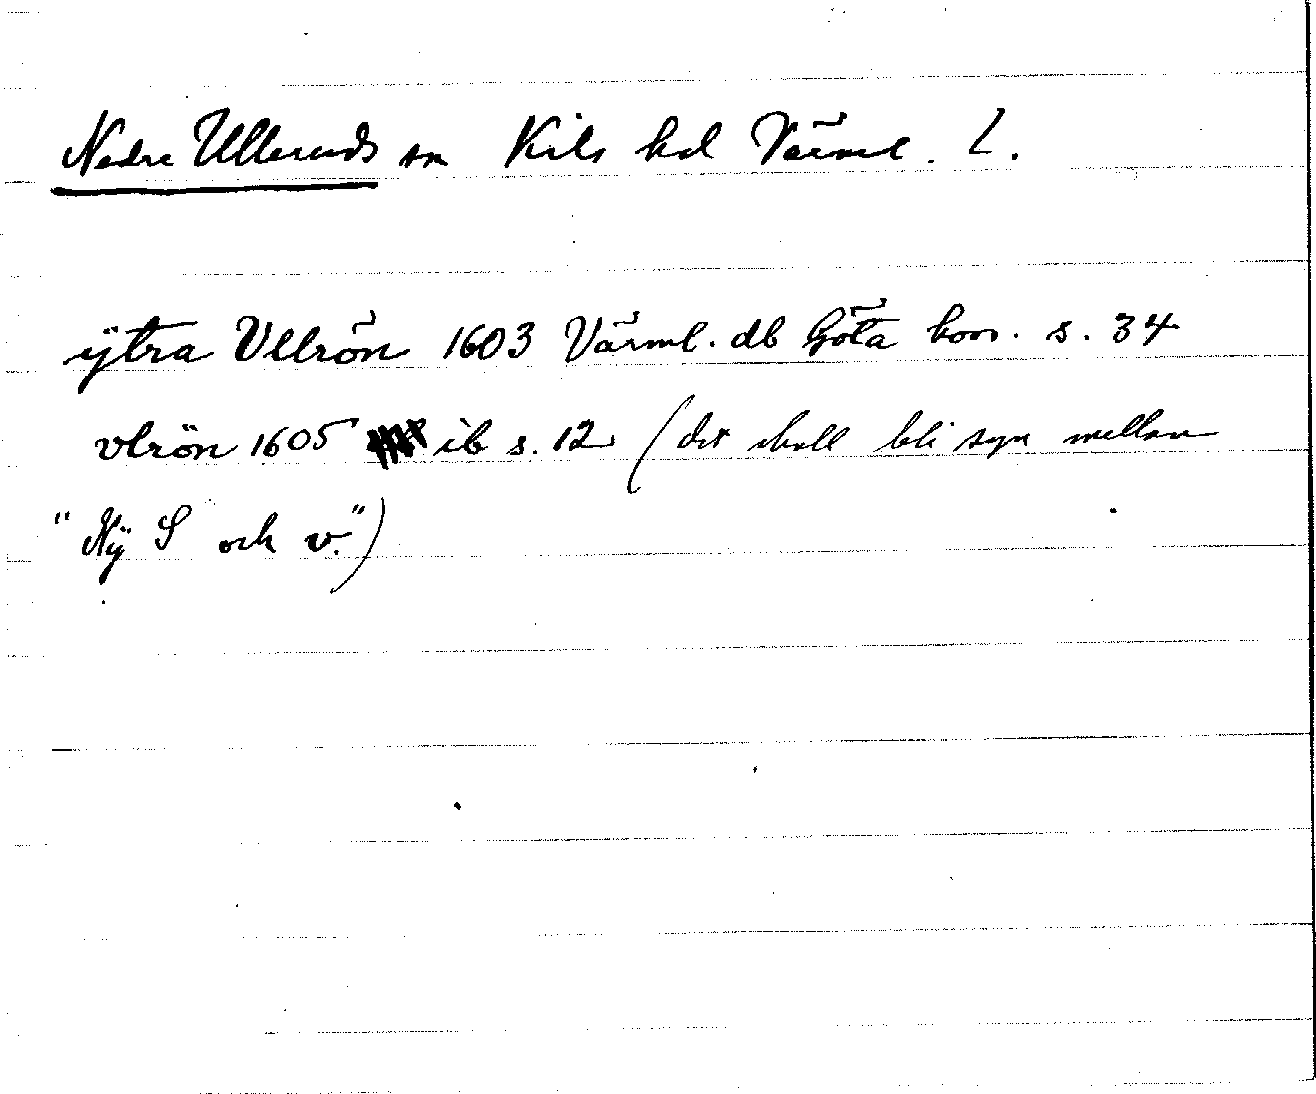 Nedre Ulleruds sn Kils hd Värml. L.
ÿtra Vllrön 1603 Värml. db Göta hovr. s. 34
vlrön 1605 ib s. 12 (det skall bli syn mellan
"Nÿ S och v.")